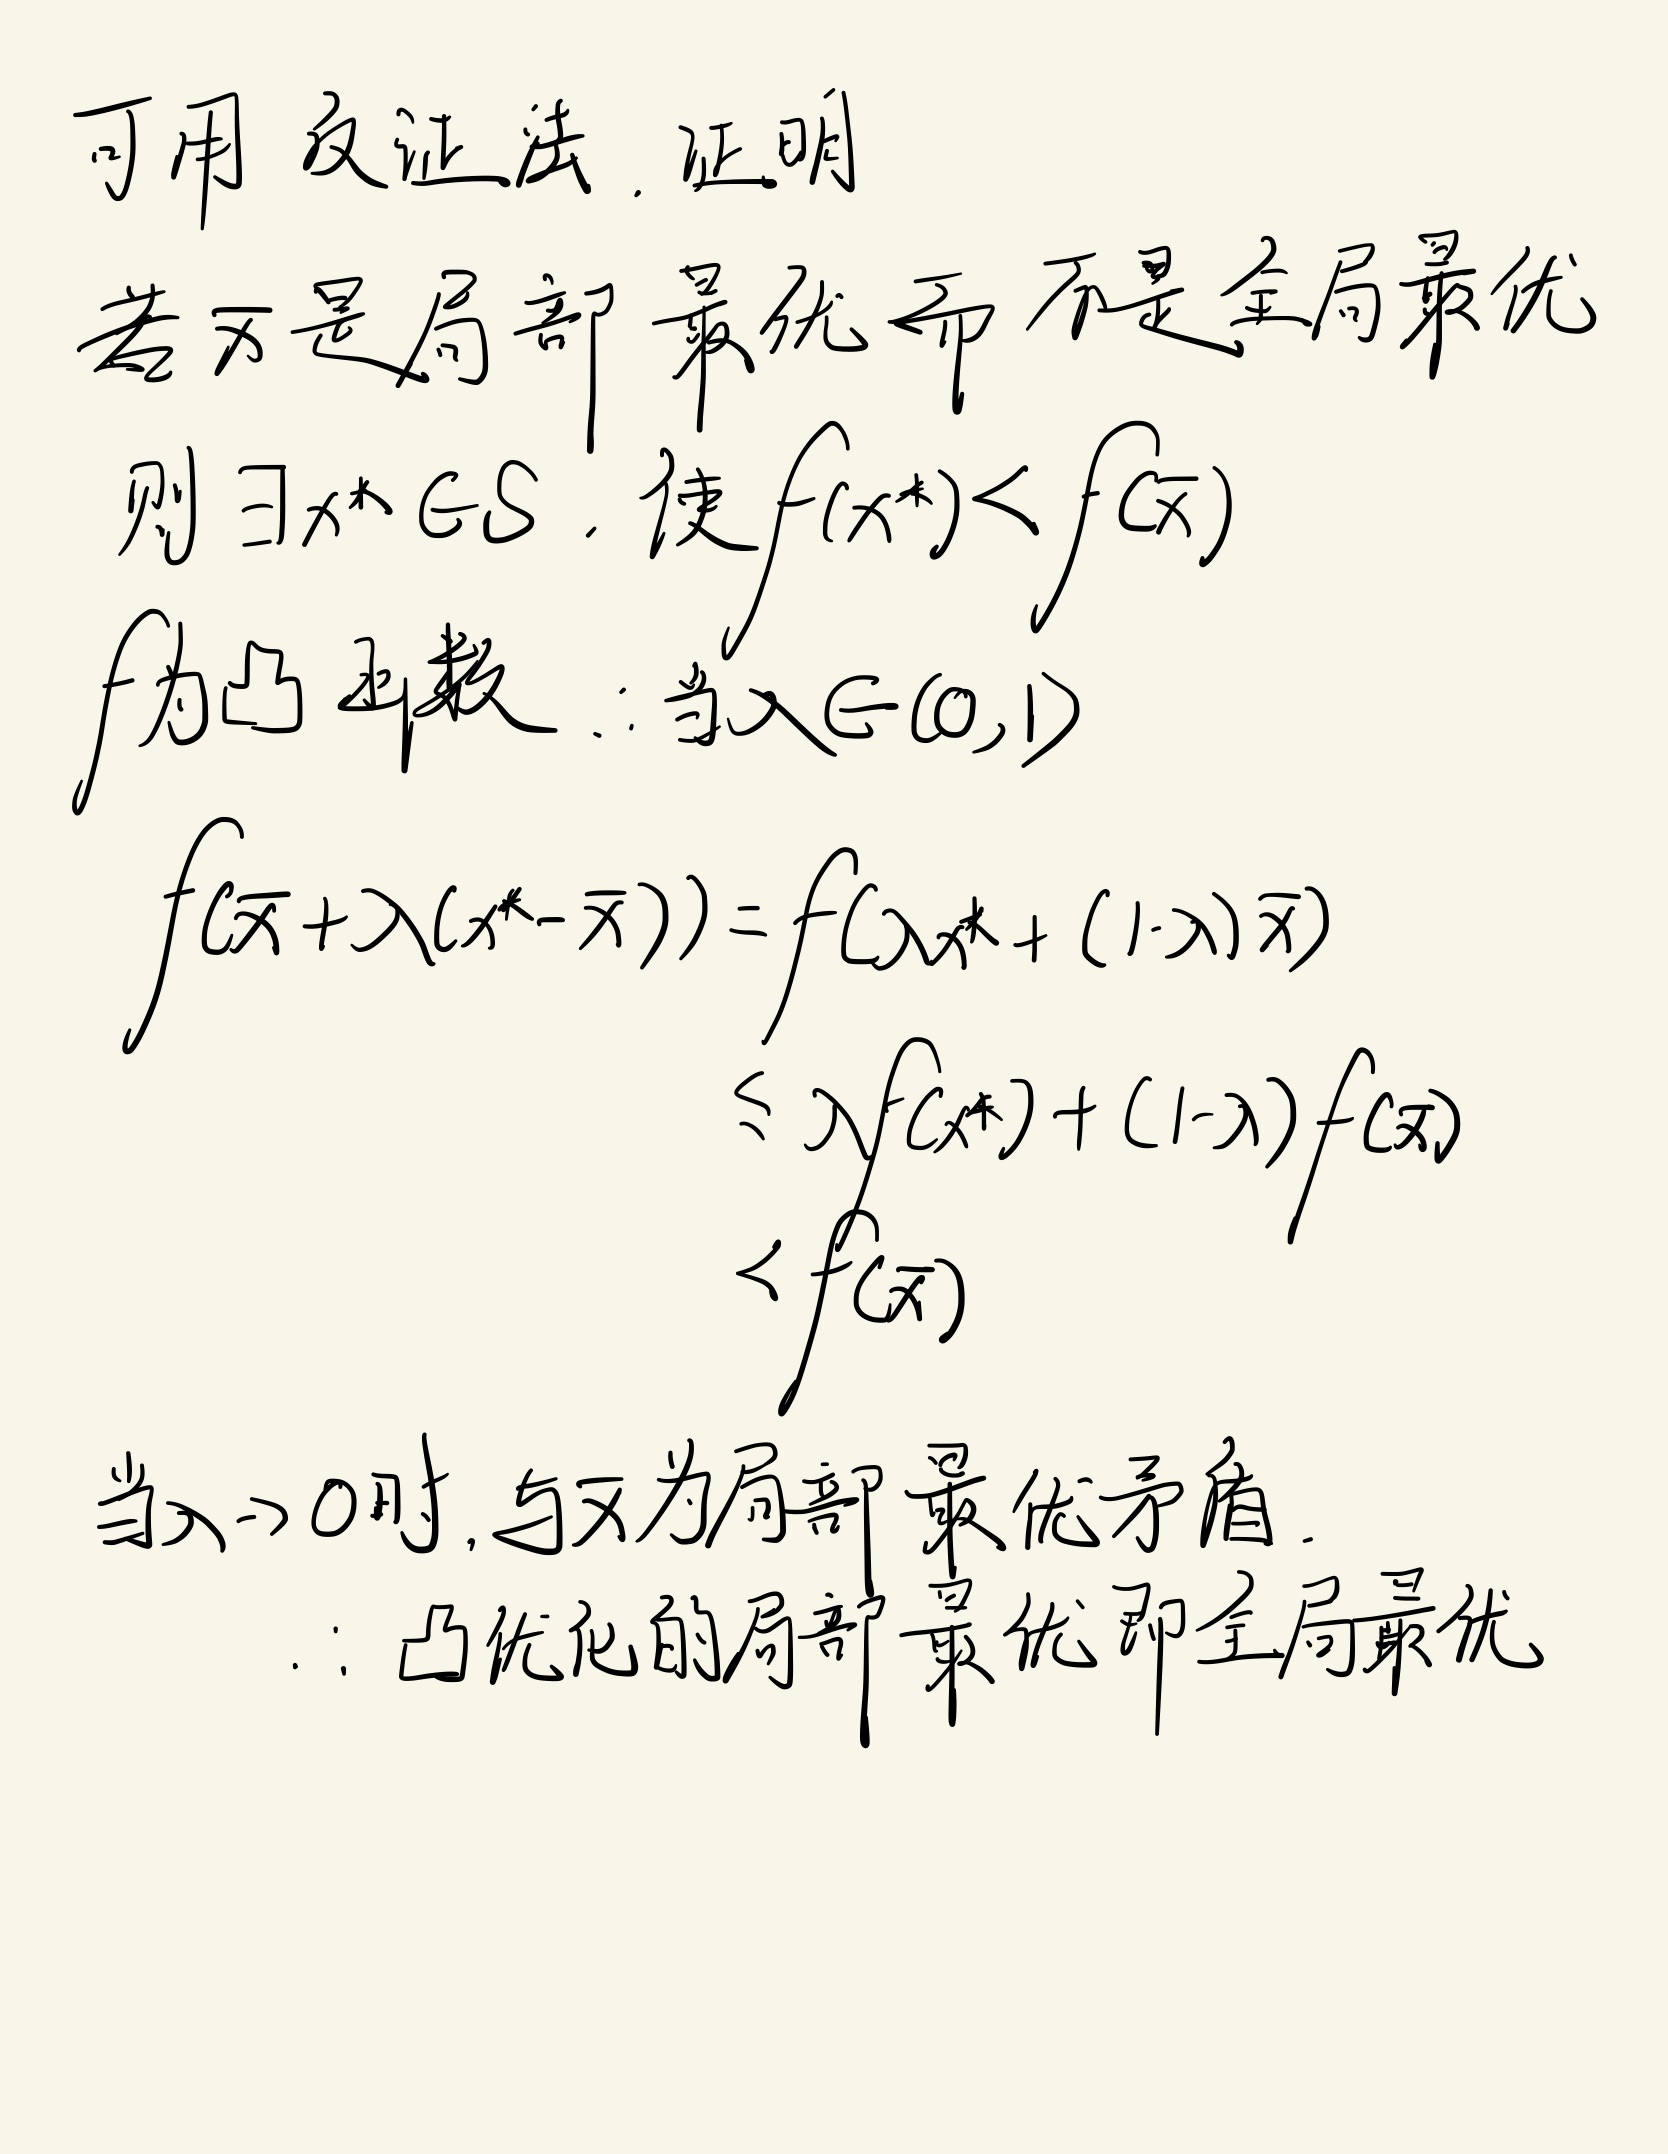 可用反证法.证明
若x̄是局部最优而不是全局最优
则∃x*∈S.使f(x*)<f(x̄)
f为凸函数 ∵当λ∈(0,1)
f(x̄+λ(x*-x̄))=f(λx*+(1-λ)x̄)
≤λf(x*)+(1-λ)f(x̄)
<f(x̄)
当λ→0时,与x̄为局部最优矛盾.
∴凸优化的局部最优即全局最优